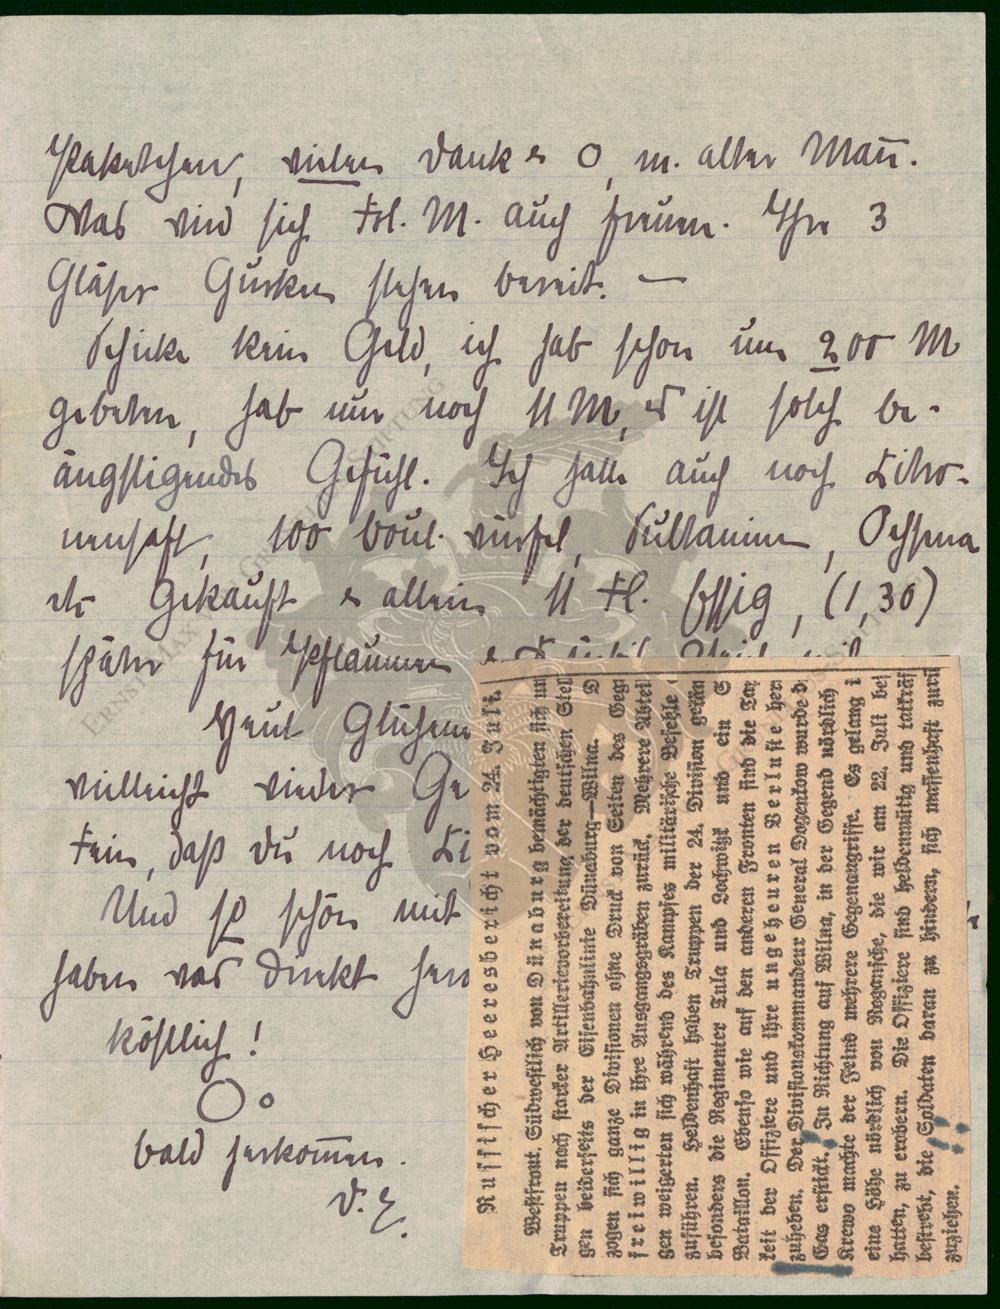 Paketchen, vielen Dank & O, m. alter Mann.
Was wird sich Frl. M. auch freuen. Ihre 3
Gläser Gurken stehen bereit. —
Schicke kein Geld, ich hab schon um 200 M
gebeten, hab nur noch 11 M, es ist solch be-
ängstigendes Gefühl. Ich habe auch noch Zitro-
nensaft, 100 Boul. würfel, Sultaninen, Ochsena
etc gekauft & allein 11 Fl. Essig, (1,30)
später für Pflaumen &
Heut Glühen
vielleicht wieder Ge
Fein, daß du noch Zi
Und so schön mit
haben was direkt
köstlich!
O o
bald herkommen.
d. E.
Russischer Heeresbericht vom 24. Juli.
Westfront. Südwestlich von Dünaburg bemächtigten sich un
Truppen nach starker Artillerievorbereitung der deutschen Stel
gen beiderseits der Eisenbahnlinie Dünaburg—Wilna. D
zogen sich ganze Divisionen ohne Druck von Seiten des Geg
freiwillig in ihre Ausgangsgräben zurück. Mehrere Abtei
gen weigerten sich während des Kampfes militärische Befehle
zuführen. Heldenhaft haben Truppen der 24. Division gekäm
besonders die Regimenter Tula und Lochwizk und ein S
Bataillon. Ebenso wie auf den anderen Fronten sind die Tap
keit der Offiziere und ihre ungeheuren Verluste her
zuheben. Der Divisionskommandeur General Dogenkow wurde d
Gas erstickt. In Richtung auf Wilna, in der Gegend nördlich
Krewo machte der Feind mehrere Gegenangriffe. Es gelang i
eine Höhe nördlich von Rogansche, die wir am 22. Juli bes
hatten, zu erobern. Die Offiziere sind heldenmütig und tatkräf
bestrebt, die Soldaten daran zu hindern, sich massenhaft zurü
zuziehen.